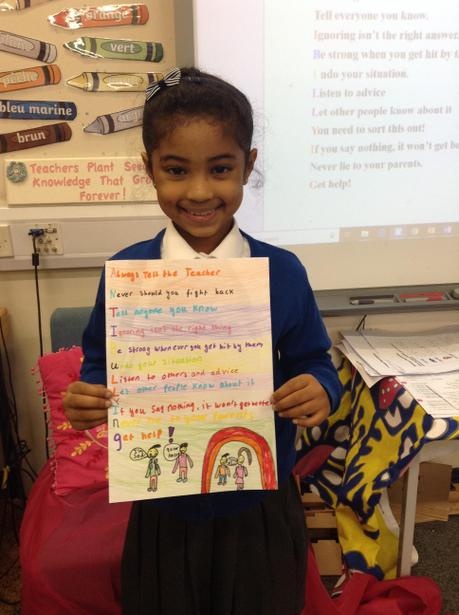 orange
vert
bleu marine
brun
argent
Teachers Plant Seeds
Knowledge That Grow
Forever!
Tell everyone you know.
Ignoring isn't the right answer.
Be strong when you get hit by th
ndo your situation.
Listen to advice
Let other people know about it
You need to sort this out!
If you say nothing, it won't get be
Never lie to your parents.
Get help!
Always Tell the Teacher
Never should you fight back
Tell anyone you know
Ignoring isn't the right thing
Be strong whenever you get hit by them
Undo your situation
Listen to others and advice
Let other People Know about it
If you say nothing, it won't get better
Never lie to your Parents
get help!